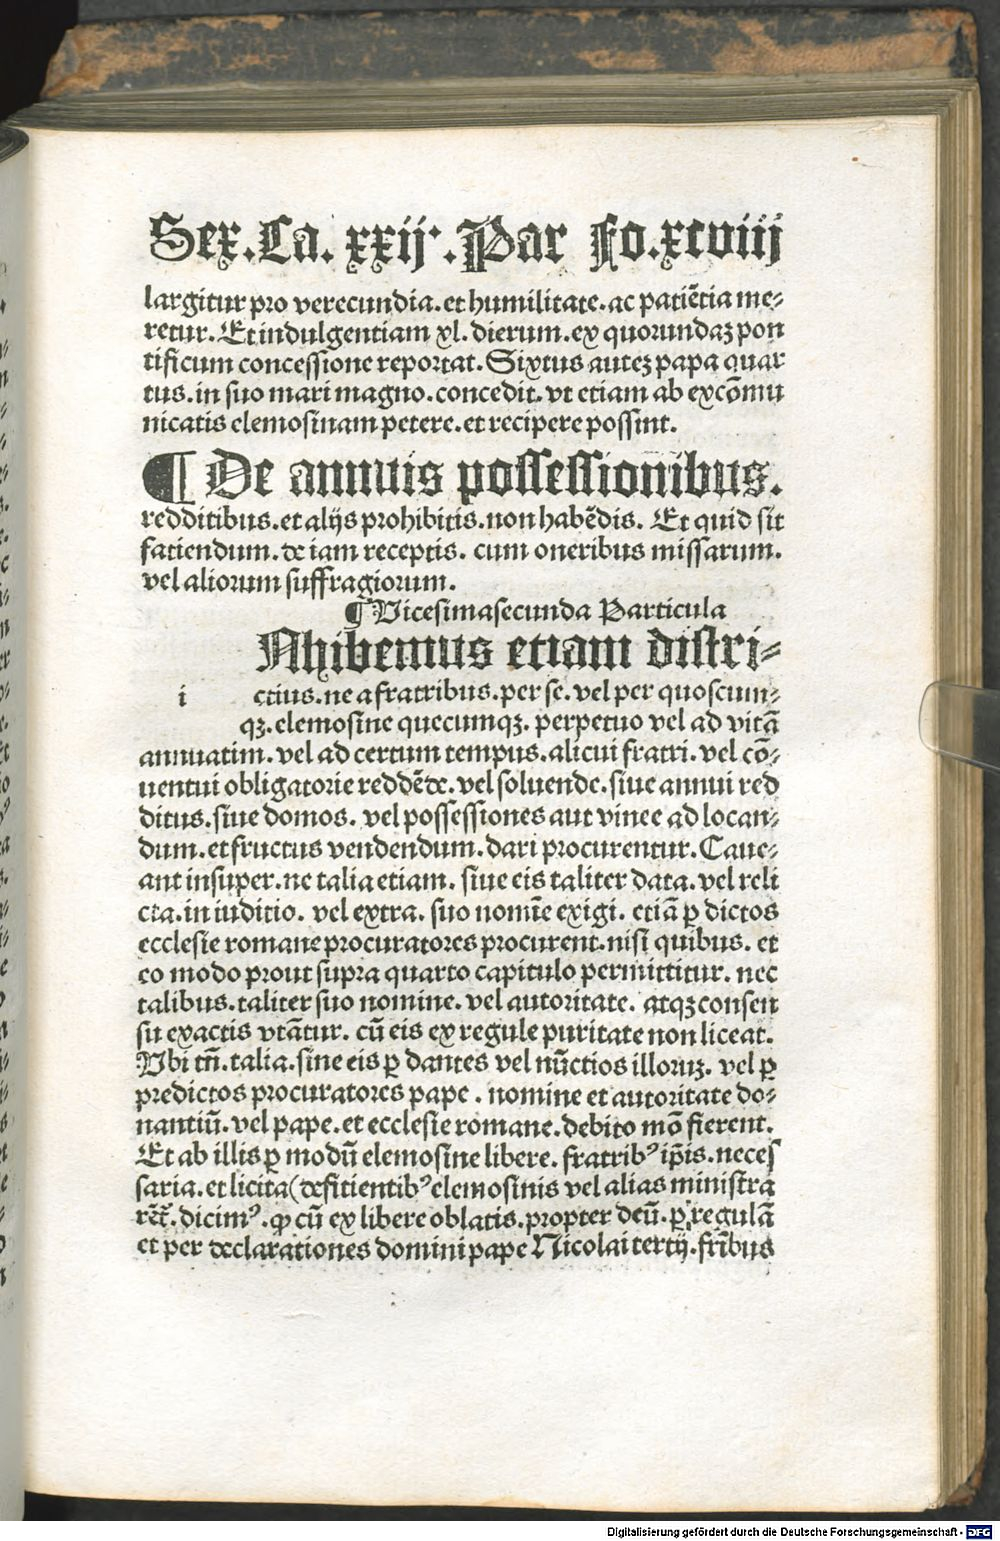 Sex. Ca. xxij. Par Fo. xcviij
largitur pro verecundia. et humilitate. ac patiẽtia me⸗
retur. Et indulgentiam xl. dierum. ex quorundaꝫ pon
tificum concessione reportat. Sixtus auteꝫ papa quar
tus. in suo mari magno. concedit. vt etiam ab excõmu
nicatis elemosinam petere. et recipere possint.
¶ De annuis possessionibus.
redditibus. et alijs prohibitis. non habẽdis. Et quid sit
fatiendum. de iam receptis. cum oneribus missarum.
vel aliorum suffragiorum.
¶ Vicesimasecunda Particula
Nhibemus etiam distri⸗
i ctius. ne a fratribus. per se. vel per quoscum⸗
qꝫ. elemosine quecumqꝫ. perpetuo vel ad vitã
annuatim. vel ad certum tempus. alicui fratri. vel cõ⸗
uentui obligatorie reddẽde. vel soluende. siue annui red
ditus. siue domos. vel possessiones aut vinee ad locan⸗
dum. et fructus vendendum. dari procurentur. Caue⸗
ant insuper. ne talia etiam. siue eis taliter data. vel reli
cta. in iuditio. vel extra. suo nomĩe exigi. etiã ꝑ dictos
ecclesie romane procuratores procurent. nisi quibus. et
eo modo prout supra quarto capitulo permittitur. nec
talibus. taliter suo nomine. vel autoritate. atqꝫ consen
su exactis vtãtur. cũ eis ex regule puritate non liceat.
Vbi tñ. talia. sine eis ꝑ dantes vel nũctios illoruꝫ. vel ꝑ
predictos procuratores pape. nomine et autoritate do⸗
nantiũ. vel pape. et ecclesie romane. debito mõ fierent.
Et ab illis ꝑ modũ elemosine libere. fratribꝰ ip̃is. neces
saria. et licita (defitientibꝰ elemosinis vel alias ministra
rẽt̃. dicimꝰ. ꝙ cũ ex libere oblatis. propter deũ. ꝑ regulã
et per declarationes domini pape Nicolai tertij. fr̃ibus
Digitalisierung gefördert durch die Deutsche Forschungsgemeinschaft - DFG